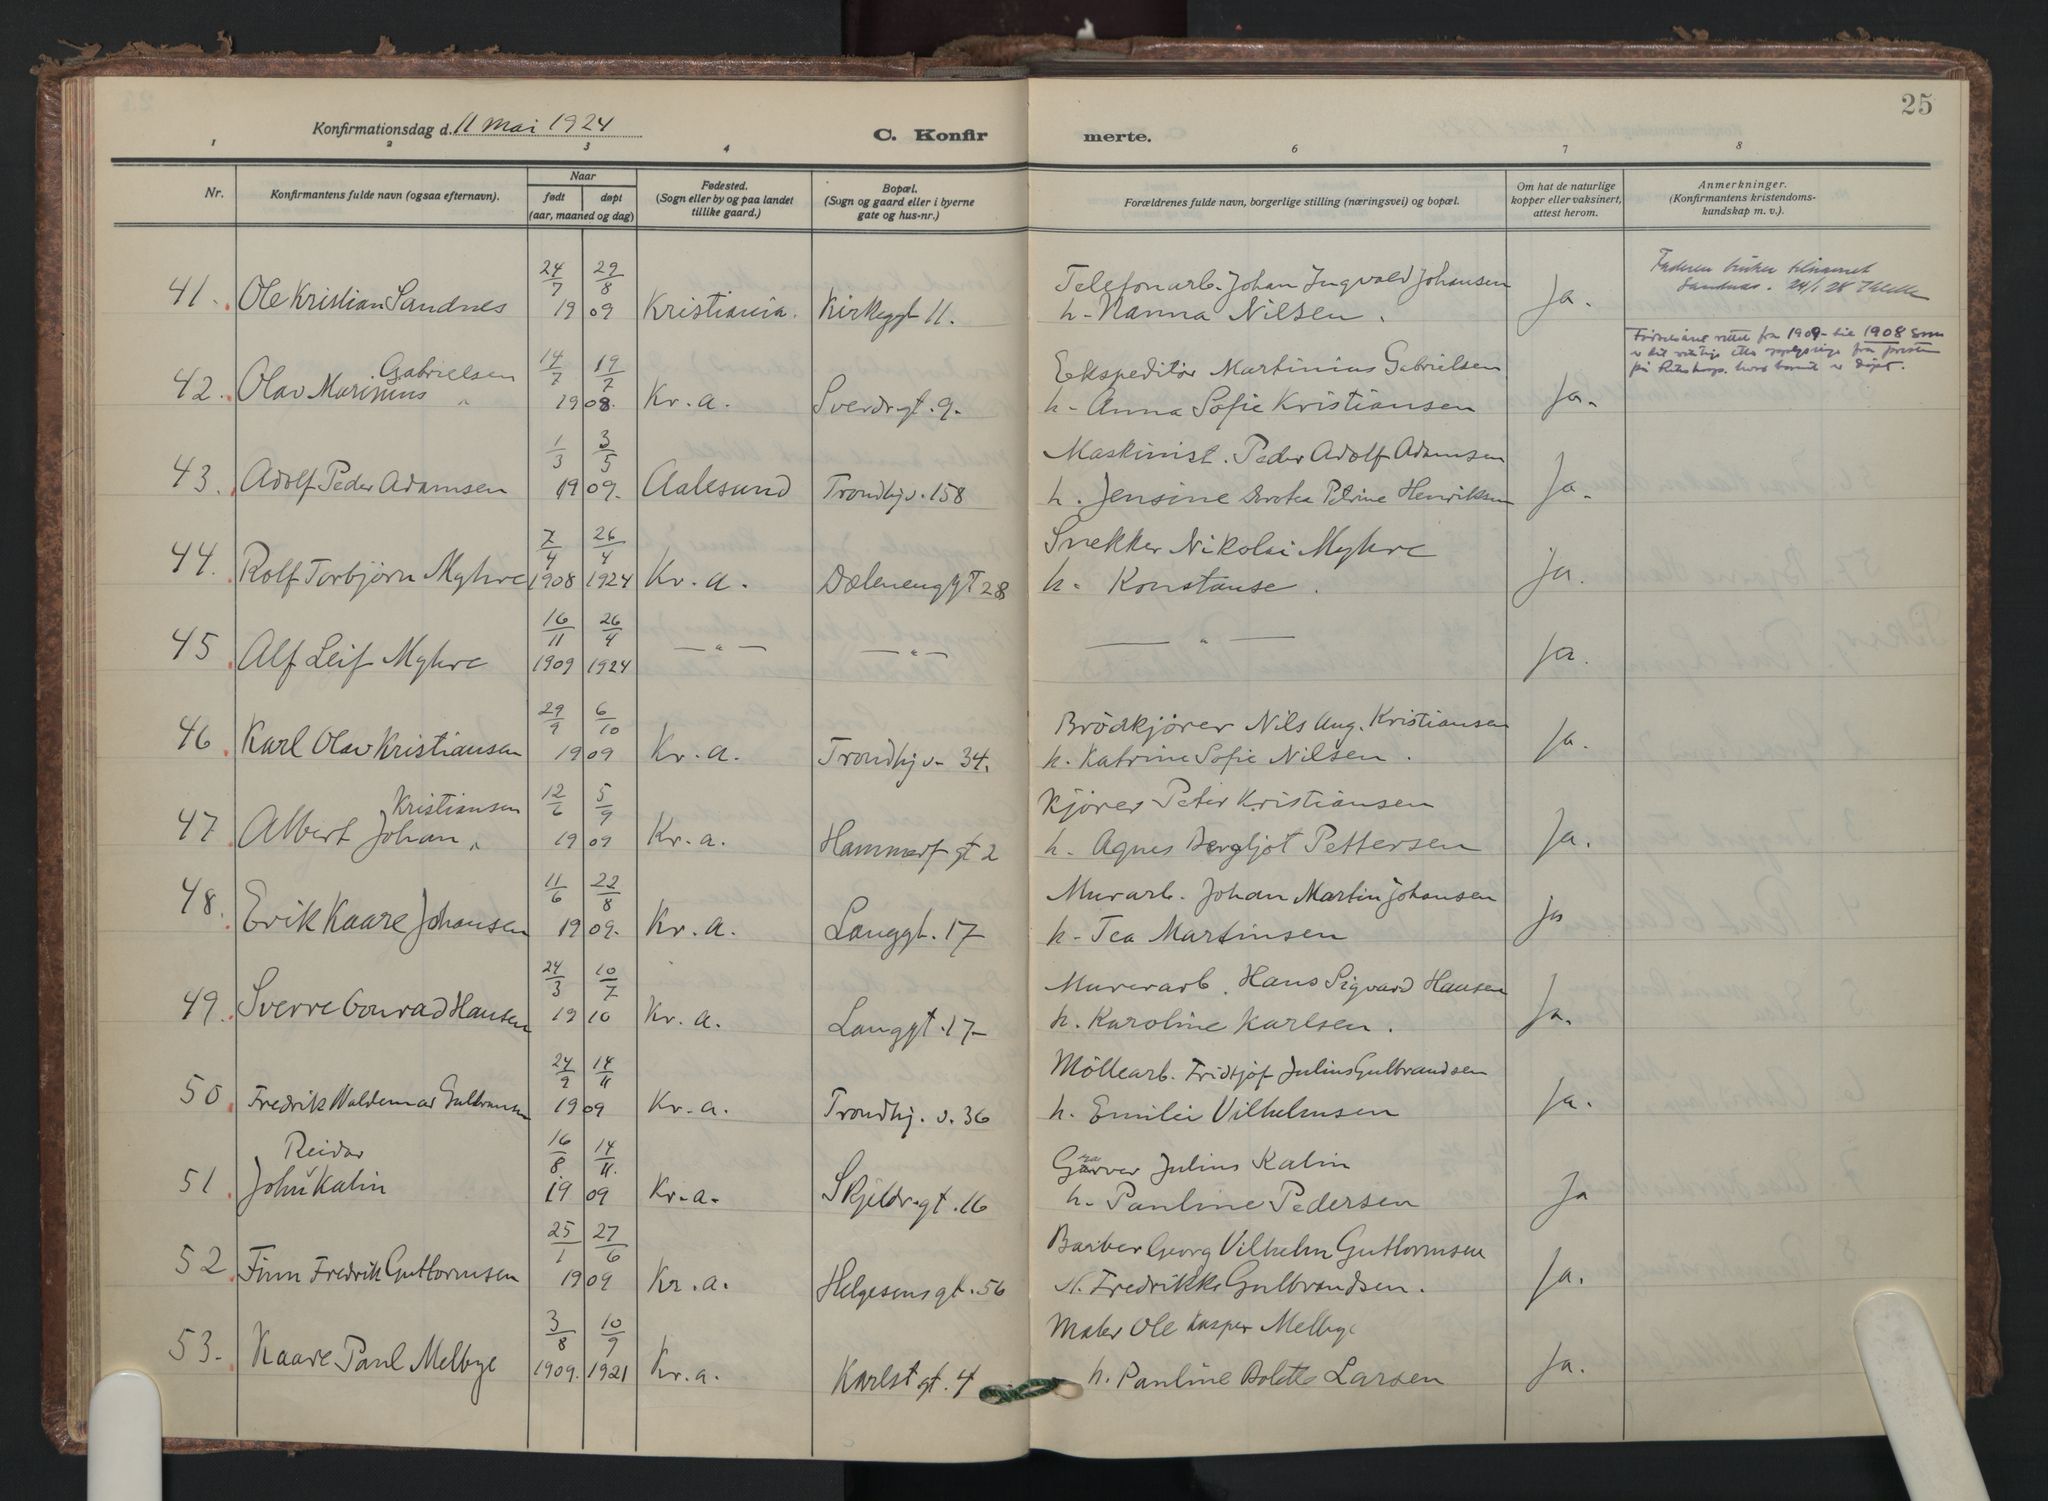 25
Konfirmationsdag d. 11 Mai 1924
C. Konfirmerte.
1 2 3 4 6 7 8
Nr.
Konfirmantens fulde navn (ogsaa efternavn).
Naar
født døpt
(aar, maaned og dag)
Fødested.
(Sogn eller by og paa landet
tillike gaard.)
Bopæl.
(Sogn og gaard eller i byerne
gate og hus-nr.)
Forældrenes fulde navn, borgerlige stilling (næringsvei) og bopæl.
Om hat de naturlige
kopper eller vaksinert,
attest herom.
Anmerkninger.
(Konfirmantens kristendoms-
kundskap m. v.)
24/7 29/8 Telefonarb. Johan Ingvald Johansen
41. Ole Kristian Sandnes 19 09 Kristiania. Kirkeggt 11. h. Nanna Nilsen. Ja.
Faderen bruker tilnavnet
Sandnes. 24/1 28
Gabrielsen 14/7 19/7 Ekspeditør Martinius Gabrielsen
42. Olav Marinius " 19 08. Kr.a. Sverdr.gt. 9. h. Anna Sofie Kristiansen Ja.
Fødselsaaret rettet fra 1909 til 1908 som
er det rigtige efter oplysninger fra presten
på hvor barnet er døpt.
1/3 3/5 Maskinist. Peder Adolf Adamsen
43. Adolf Peder Adamsen 19 09. Aalesund Trondhj.v. 158 h. Jensine Dorotea Petrine Henriksen Ja.
7/4 26/4 Snekker Nikolai Myhre
44. Rolf Torbjørn Myhre 1908 1924 Kr.a. Dælenenggt 28 h. Konstanse. Ja.
16/11 26/4
45 Alf Leif Myhre 1909 1924 — " — — " — — " — Ja.
29/9 6/10 Brödkjører Nils Aug. Kristiansen
46 Karl Olav Kristiansen 19 09 Kr.a. Trondhj v. 34. h. Katrine Sofie Nilsen. Ja.
Kristiansen 12/6 5/9 Kjører Peter Kristiansen
47 Albert Johan " 19 09 Kr.a. Hammerf gt 2 h. Agnes Bergljot Pettersen Ja.
11/6 22/8 Murarb. Johan Martin Johansen
48. Erik Kaare Johansen 19 09. Kr.a. Langgt. 17 h. Tea Martinsen Ja
24/3 10/7 Murerarb. Hans Sigvard Hansen
49. Sverre Conrad Hansen 19 10 Kr.a. Langgt. 17 h. Karoline Karlsen. Ja.
24/9 14/11 Möllearb. Fridtjof Julius Gulbrandsen
50. Fredrik Waldemar Gulbransen 19 09 Kr.a. Trondhj. v. 36 h. Emilie Vilhelmsen Ja.
Reidar 16/8. 14/11. Garver Julius Kalin
51. John Kalin 19 09 Kr.a. Skjeldr.gt. 16 h. Pauline Pedersen Ja
25/1 27/6 Barber Georg Vilhelm Guttormsen
52. Finn Fredrik Guttormsen 19 09 Kr.a. Helgesensgt. 56 H. Fredrikke Gulbrandsen. Ja.
3/8 10/9 Maler Ole Kasper Melbye
53. Kaare Paul Melbye 1909. 1921 Kr.a. Karlst gt. 4 h. Pauline Bolette Larsen Ja.